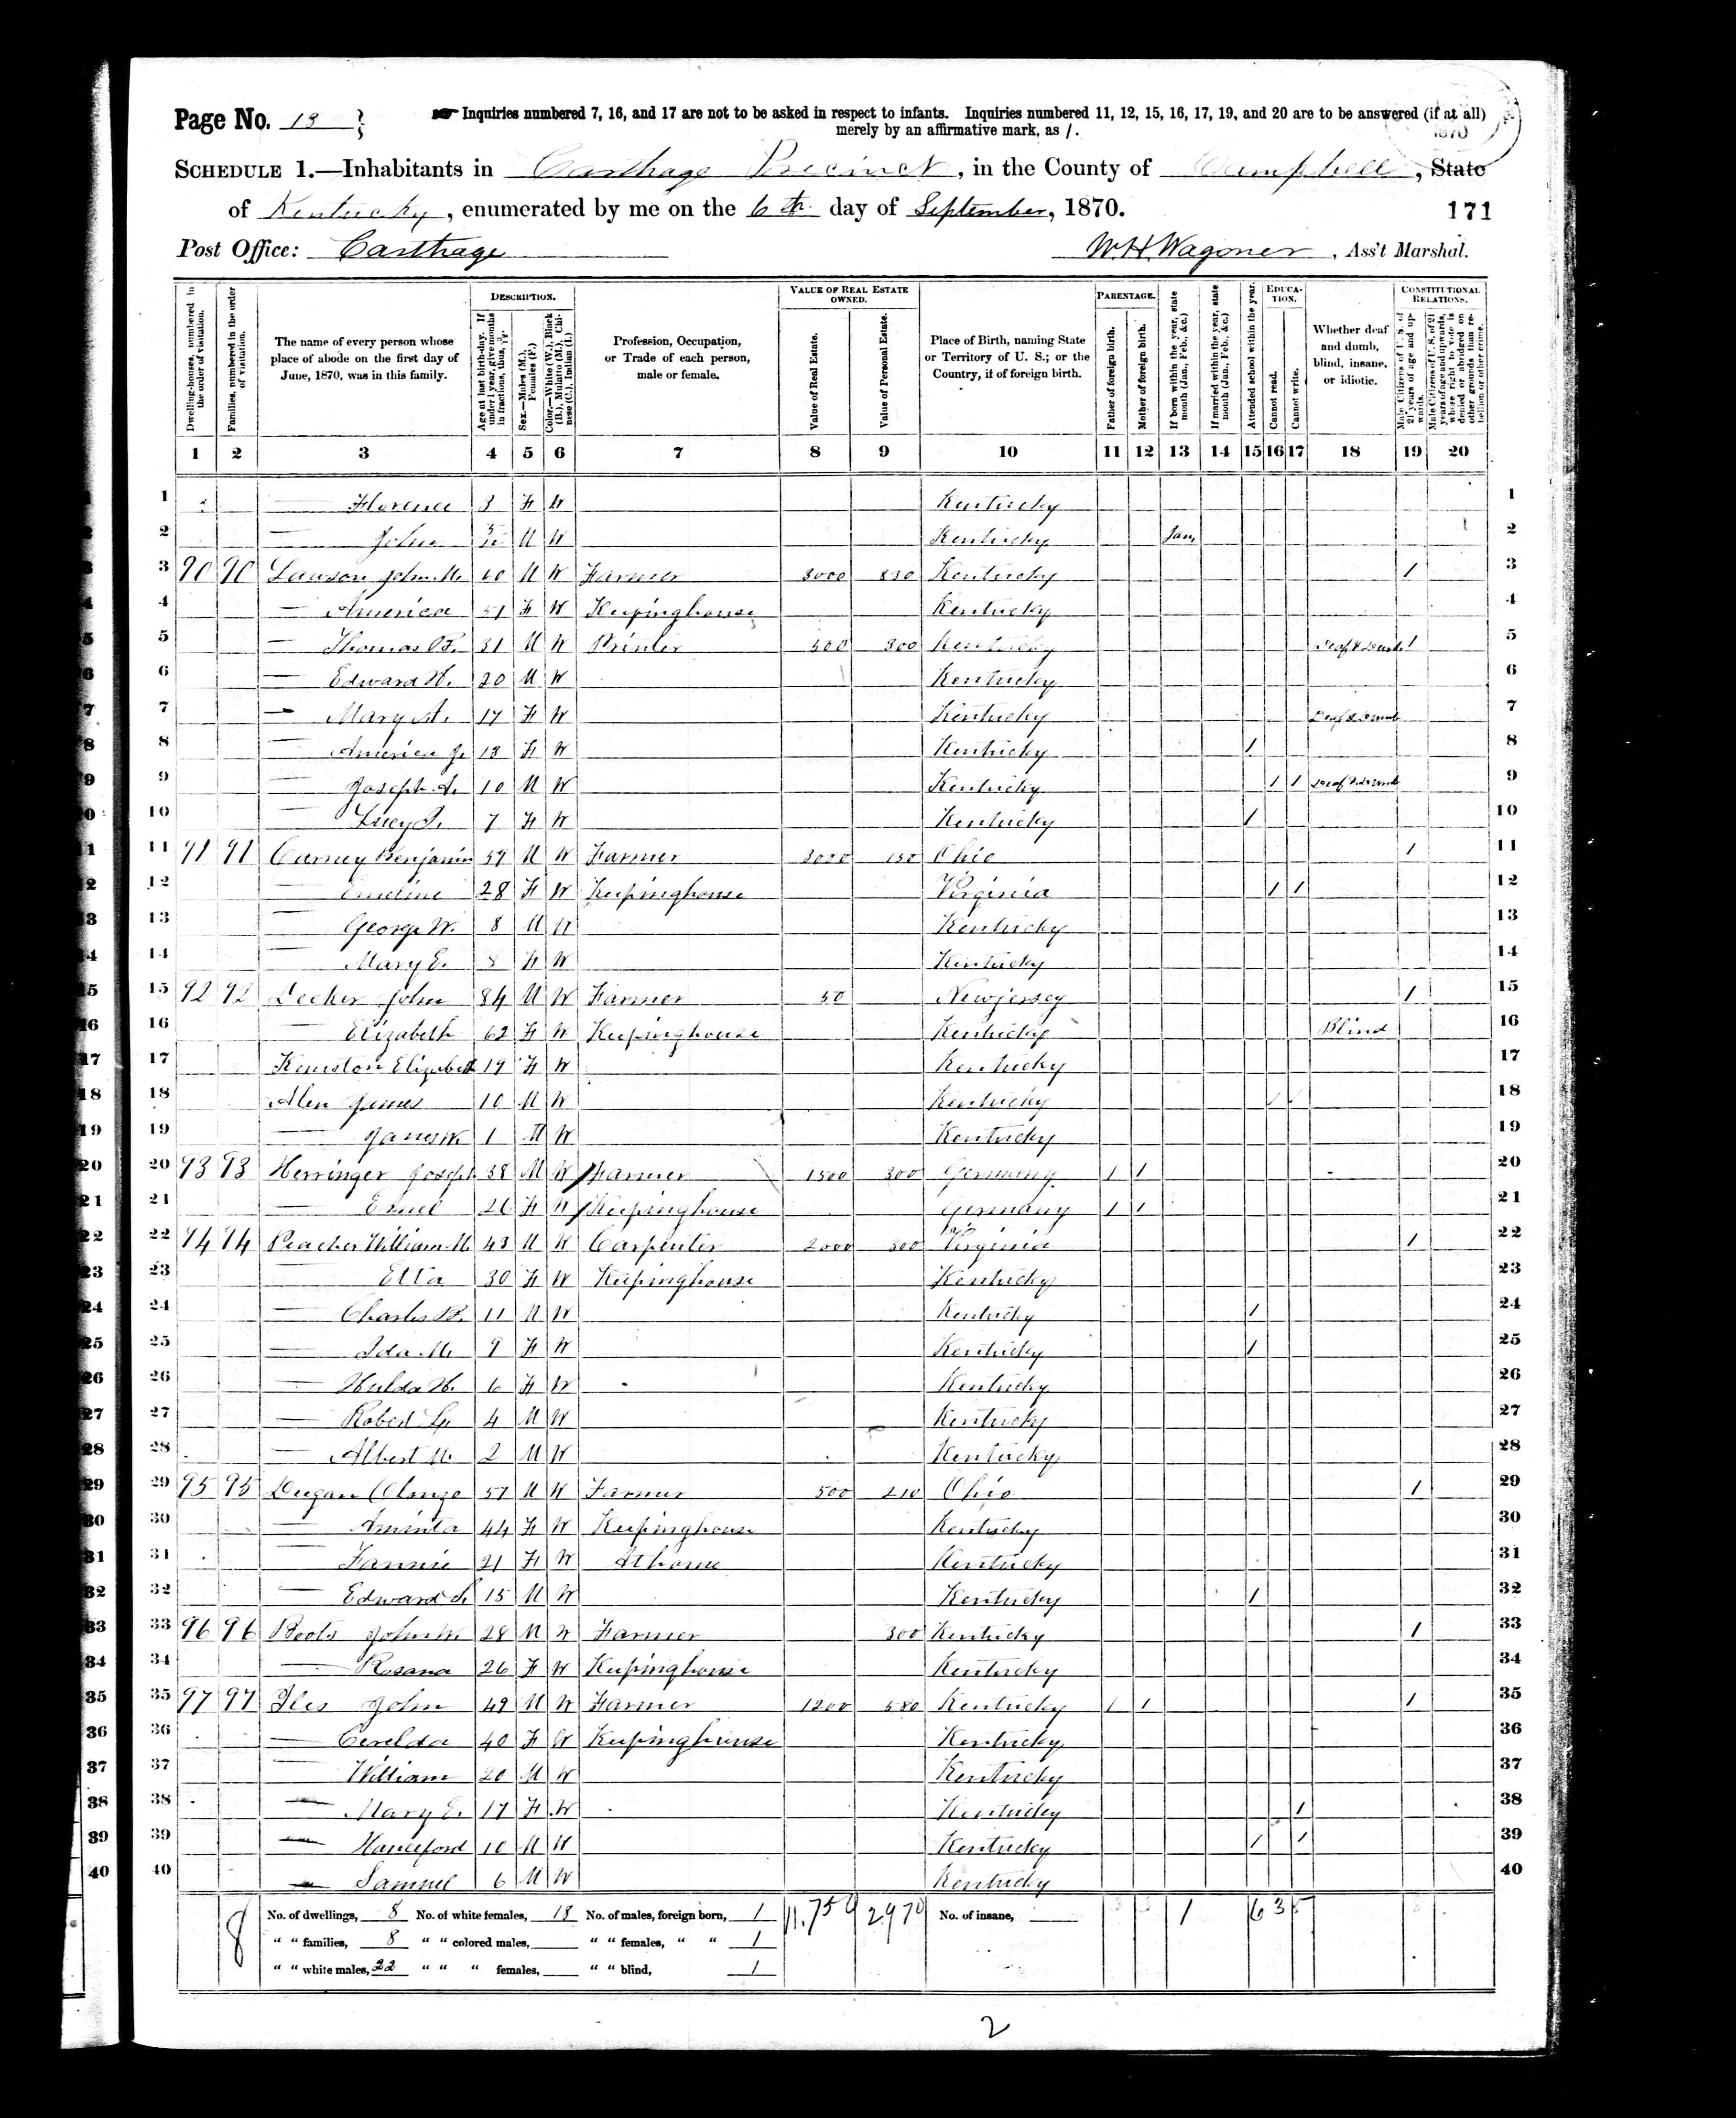 Page No. 13
Inquiries numbered 7, 16, and 17 are not to be asked in respect to infants. Inquiries numbered 11, 12, 15, 16, 17, 19, and 20 are to be answered (if at all)
merely by an affirmative mark, as /.
SCHEDULE 1.—Inhabitants in Carthage Precinct, in the County of Campbell, State
of Kentucky, enumerated by me on the 6th day of September, 1870.
171
Post Office: Carthage
W.H. Wagoner, Ass't Marshal.
DESCRIPTION.
VALUE OF REAL ESTATE OWNED.
PARENTAGE.
EDUCATION.
CONSTITUTIONAL RELATIONS.
Dwelling-houses, numbered in the order of visitation.
Families, numbered in the order of visitation.
The name of every person whose place of abode on the first day of June, 1870, was in this family.
Age at last birth-day. If under 1 year, give months in fractions, thus, 3/12.
Sex.—Males (M.), Females (F.)
Color.—White (W.), Black (B.), Mulatto (M.), Chinese (C.), Indian (I.)
Profession, Occupation, or Trade of each person, male or female.
Value of Real Estate.
Value of Personal Estate.
Place of Birth, naming State or Territory of U. S.; or the Country, if of foreign birth.
Father of foreign birth.
Mother of foreign birth.
If born within the year, state month (Jan., Feb., &c.)
If married within the year, state month (Jan., Feb., &c.)
Attended school within the year.
Cannot read.
Cannot write.
Whether deaf and dumb, blind, insane, or idiotic.
Male Citizens of U. S. of 21 years of age and upwards.
Male Citizens of U. S. of 21 years of age and upwards, whose right to vote is denied or abridged on other grounds than rebellion or other crime.
1 2 3 4 5 6 7 8 9 10 11 12 13 14 15 16 17 18 19 20
1 — Florence 3 F W Kentucky 1
2 — John M W Kentucky Jan 2
3 90 90 Lawson John M. 60 M W Farmer 3000 830 Kentucky / 3
4 — America 51 F W Keepinghouse Kentucky 4
5 — Thomas B. 31 M W Printer 500 300 Kentucky Deaf & Dumb / 5
6 — Edward H. 20 M W Kentucky 6
7 — Mary A. 17 F W Kentucky Deaf & Dumb 7
8 — America J. 13 F W Kentucky / 8
9 — Joseph A. 10 M W Kentucky / / Deaf & Dumb 9
10 — Lucy J. 7 F W Kentucky / 10
11 91 91 Carney Benjamin 59 M W Farmer 3000 150 Ohio / 11
12 — Emeline 28 F W Keepinghouse Virginia / / 12
13 — George W. 8 M W Kentucky 13
14 — Mary E. F W Kentucky 14
15 92 92 Decker John 84 M W Farmer 50 Newjersey / 15
16 — Elizabeth 62 F W Keepinghouse Kentucky Blind 16
17 Keniston Elizabeth 19 F W Kentucky 17
18 Alen James 10 M W Kentucky / / 18
19 — James W. 1 M W Kentucky 19
20 93 93 Herringer Joseph 38 M W Farmer 1500 300 Germany / / 20
21 — 26 F W Keepinghouse Germany / / 21
22 94 94 Peacher William M. 43 M W Carpenter 2000 300 Virginia / 22
23 — Etta 30 F W Keepinghouse Kentucky 23
24 — Charles B. 11 M W Kentucky / 24
25 — Ida M. 9 F W Kentucky / 25
26 — Hulda H. 6 F W Kentucky 26
27 — Robert L. 4 M W Kentucky 27
28 — Albert M. 2 M W Kentucky 28
29 95 95 Degan Alonzo 57 M W Farmer 500 210 Ohio / 29
30 — Aminta 44 F W Keepinghouse Kentucky 30
31 — Fannie 21 F W At home Kentucky 31
32 — Edward S. 15 M W Kentucky / 32
33 96 96 Boots John W. 28 M W Farmer 300 Kentucky / 33
34 — Rosana 26 F W Keepinghouse Kentucky 34
35 97 97 Iles John 49 M W Farmer 1200 580 Kentucky / / / 35
36 — Cerelda 40 F W Keepinghouse Kentucky 36
37 — William 20 M W Kentucky 37
38 — Mary E. 17 F W Kentucky / 38
39 — Hanceford 10 M W Kentucky / / 39
40 — Samuel 6 M W Kentucky 40
8 No. of dwellings, 8 No. of white females, 18 No. of males, foreign born, 1 11,750 2970 No. of insane, 1 6 3 5
" " families, 8 " " colored males, " " females, " " 1
" " white males, 22 " " " females, " " blind, 1
2